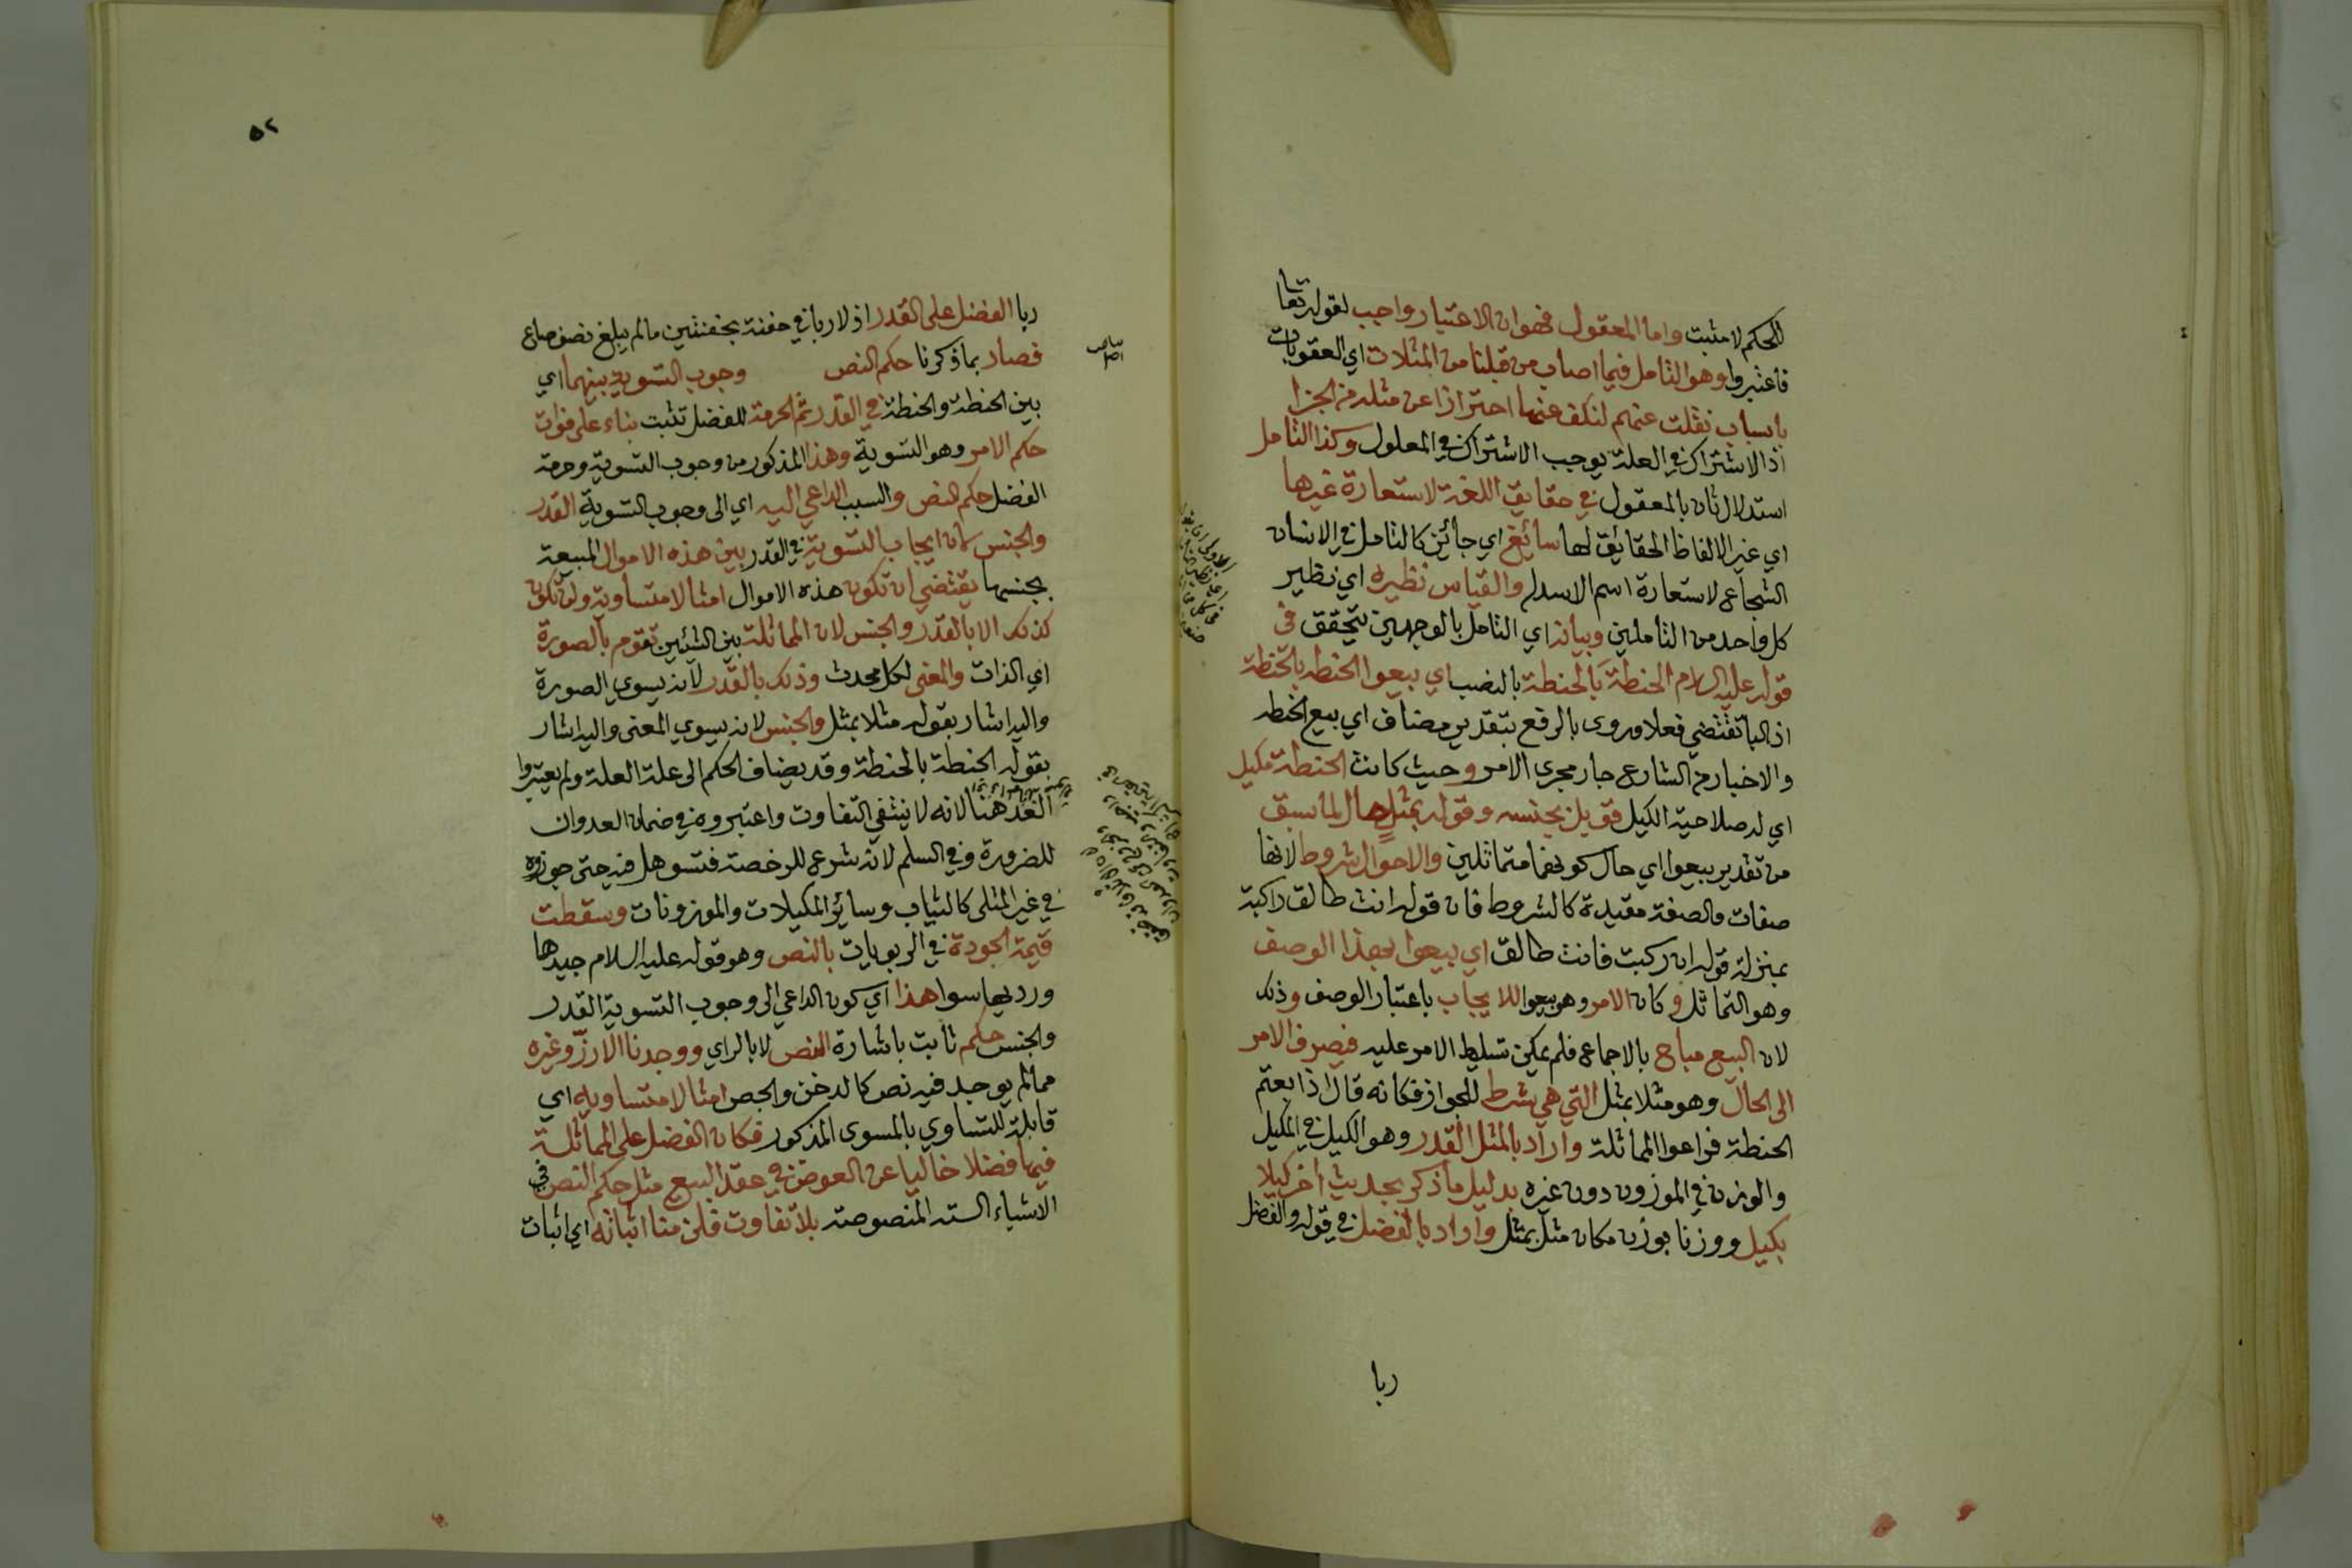 للحكم لا مثبت واما المعقول فهو ان الاعتبار واجب لقوله تعا
فاعتبروا وهو التامل فيما اصاب من قبلنا من المثلات اي العقوبات
باسباب نقلت عنهم لنكف عنها احترازا عن مثله من الجزا
اذ الاشتراك في العلة يوجب الاشتراك في المعلول وكذا التامل
استدلال ثان بالمعقول في حقايق اللغة لاستعارة غيرها
اي غير الالفاظ الحقائق لها سائغ اي جائز كالتامل في الانسان
الشجاع لاستعارة اسم الاسد له والقياس نظيره اي نظير
كل واحد من التاملين وبيانه اي التامل بالوجهين يتحقق في
قوله عليه السلام الحنطة بالحنطة بالنصب اي بيعوا الحنطه بالحنطة
اذ البا تقتضي فعلا وروى بالرفع بتقدير مضاف اي بيع الحنطه
والاخبار من الشارع جار مجرى الامر وحيث كانت الحنطة مكيل
اي له صلاحية الكيل قوبل بجنسه وقوله بمثل حال لما سبق
من تقدير بيعوا اي حال كونهما متماثلين والاحوال شروط لانها
صفات والصفة مقيدة كالشروط فان قوله انت طالق راكبة
بمنزلة قوله ان ركبت فانت طالق اي بيعوا بهذا الوصف
وهو التماثل و كان الامر وهو بيعوا للايجاب باعتبار الوصف وذلك
لان البيع مباح بالاجماع فلم يمكن تسليط الامر عليه فيصرف الامر
الى الحال وهو مثلا بمثل التي هي شرط للجواز فكانه قال اذا بعتم
الحنطة فراعوا المماثلة واراد بالمثل القدر وهو الكيل في المكيل
والوزن في الموزون دون غيره بدليل ما ذكر بحديث اخر كيلا
بكيل ووزنا بوزن مكان مثل بمثل واراد بالفضل في قوله والفضل
ربا
٥٢
ربا الفضل على القدر اذ لا ربا في حفنة بحفنتين ما لم يبلغ نصف صاع
فصار بما ذكرنا حكم النص وجوب التسوية بينهما اي
بين الحنطة والحنطة في القدر ثم الحرمة للفضل تثبت بناء على فوات
حكم الامر وهو التسوية وهذا المذكور من وجوب التسوية وحرمة
الفضل حكم النص والسبب الداعي اليه اي الى وجوب التسوية القدر
والجنس لان ايجاب التسوية في القدر بين هذه الاموال المبيعة
بجنسها يقتضي ان تكون هذه الاموال امثالا متساوية ولن تكون
كذلك الا بالقدر والجنس لان المماثلة بين الشيئين تقوم بالصورة
اي الذات والمعنى لكل محدث وذلك بالقدر لانه يسوي الصورة
واليه اشار بقوله مثلا بمثل والجنس لانه يسوي المعنى واليه اشار
بقوله الحنطة بالحنطة وقد يضاف الحكم الى علة العلة ولم يعتبروا
العد هنا لانه لا ينتفي التفاوت واعتبروه في ضمان العدوان
للضرورة وفي السلم لانه شرع للرخصة فتسوهل فيه حتى جوزوه
في غير المثلى كالثياب وسائر المكيلات والموزونات وسقطت
قيمة الجودة في الربويات بالنص وهو قوله عليه السلام جيدها
ورديها سوا هذا اي كون الداعي الى وجوب التسوية القدر
والجنس حكم ثابت باشارة النص لا بالراي ووجدنا الارز وغيره
مما لم يوجد فيه نص كالدخن والجص امثالا متساويه اي
قابلة للتساوي بالمسوى المذكور فكان الفضل على المماثلة
فيها فضلا خاليا عن العوض في عقد البيع مثل حكم النص في
الاشياء الستة المنصوصة بلا تفاوت فلزمنا اثباته اي اثبات